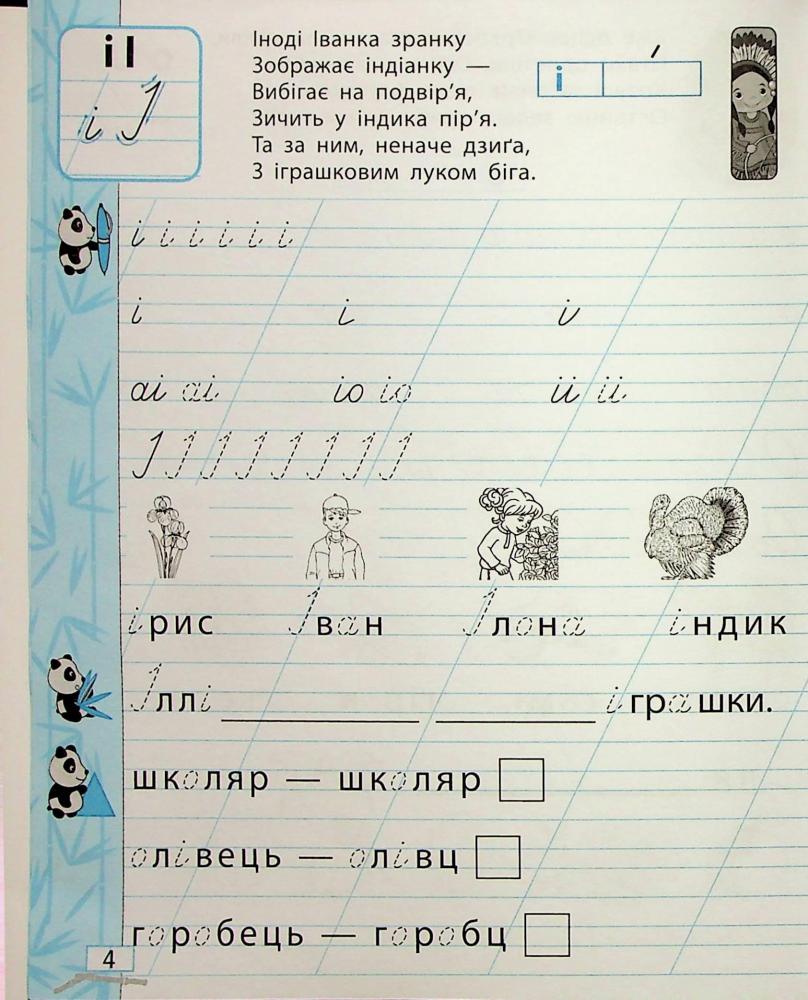 і І
і І
Іноді Іванка зранку
Зображає індіанку —
Вибігає на подвір'я,
Зичить у індика пір'я.
Та за ним, неначе дзиґа,
З іграшковим луком біга.
і
і і і і і і
і і і
аі аі іо іо іі іі
І І І І І І І І
ірис Іван Ілона індик
Іллі ____________ __________ іграшки.
школяр — школяр
олівець — олівц
горобець — горобц
4